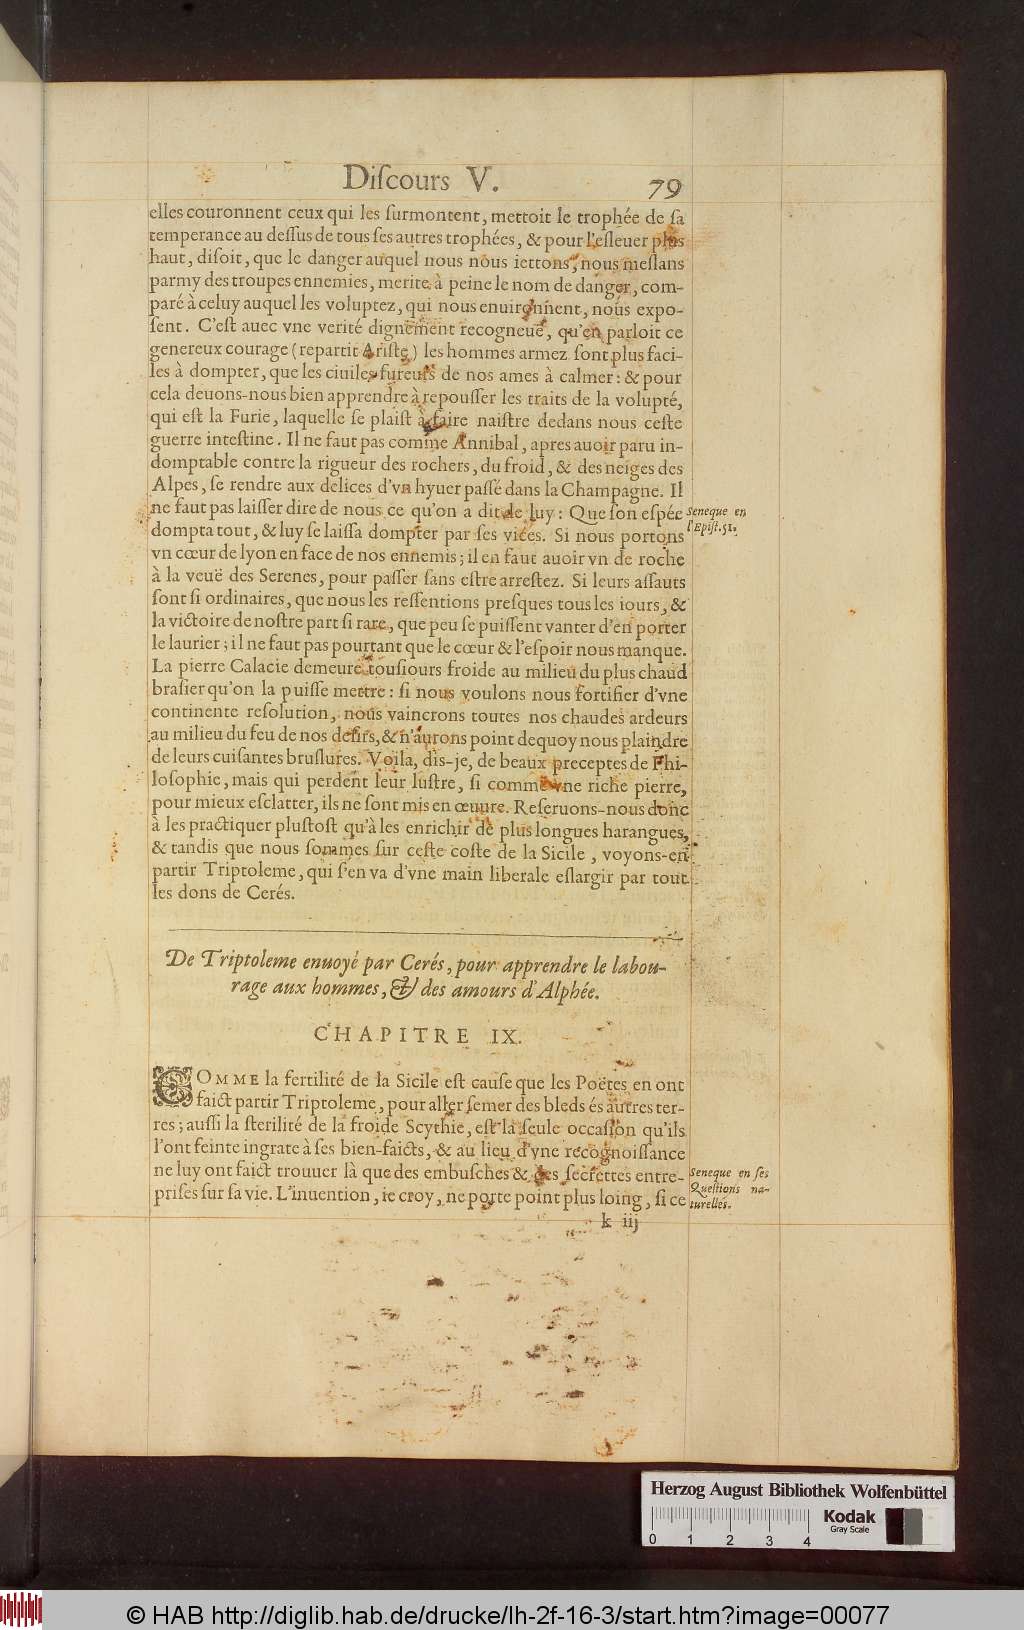 Diſcours V. 79
elles couronnent ceux qui les ſurmontent, mettoit le trophée de ſa
temperance au deſſus de tous ſes autres trophées, & pour l'eſleuer plus
haut, diſoit, que le danger auquel nous nous iettons, nous meſlans
parmy des troupes ennemies, merite à peine le nom de danger, com-
paré à celuy auquel les voluptez, qui nous enuironnent, nous expo-
ſent. C'eſt auec vne verité dignement recogneuë, qu'en parloit ce
genereux courage (repartit Ariſte) les hommes armez ſont plus faci-
les à dompter, que les ciuiles fureurs de nos ames à calmer: & pour
cela deuons-nous bien apprendre à repouſſer les traits de la volupté,
qui eſt la Furie, laquelle ſe plaiſt à faire naiſtre dedans nous ceſte
guerre inteſtine. Il ne faut pas comme Annibal, apres auoir paru in-
domptable contre la rigueur des rochers, du froid, & des neiges des
Alpes, ſe rendre aux delices d'vn hyuer paſſé dans la Champagne. Il
ne faut pas laiſſer dire de nous ce qu'on a dit de luy: Que ſon eſpée
dompta tout, & luy ſe laiſſa dompter par ſes vices. Si nous portons
vn cœur de lyon en face de nos ennemis; il en faut auoir vn de roche
à la veuë des Serenes, pour paſſer ſans eſtre arreſtez. Si leurs aſſauts
ſont ſi ordinaires, que nous les reſſentions preſques tous les iours, &
la victoire de noſtre part ſi rare, que peu ſe puiſſent vanter d'en porter
le laurier; il ne faut pas pourtant que le cœur & l'eſpoir nous manque.
La pierre Calacie demeure touſiours froide au milieu du plus chaud
braſier qu'on la puiſſe mettre: ſi nous voulons nous fortifier d'vne
continente reſolution, nous vaincrons toutes nos chaudes ardeurs
au milieu du feu de nos deſirs, & n'aurons point dequoy nous plaindre
de leurs cuiſantes bruſlures. Voila, dis-je, de beaux preceptes de Phi-
loſophie, mais qui perdent leur luſtre, ſi comme vne riche pierre,
pour mieux eſclatter, ils ne ſont mis en œuure. Reſeruons-nous donc
à les practiquer pluſtoſt qu'à les enrichir de plus longues harangues,
& tandis que nous ſommes ſur ceſte coſte de la Sicile, voyons-en
partir Triptoleme, qui ſ'en va d'vne main liberale eſlargir par tout
les dons de Cerés.
Seneque en
l'Epiſt. 51.
De Triptoleme enuoyé par Cerés, pour apprendre le labou-
rage aux hommes, & des amours d'Alphée.
CHAPITRE IX.
COMME la fertilité de la Sicile eſt cauſe que les Poëtes en ont
faict partir Triptoleme, pour aller ſemer des bleds és autres ter-
res; auſſi la ſterilité de la froide Scythie, eſt la ſeule occaſion qu'ils
l'ont feinte ingrate à ſes bien-faicts, & au lieu d'vne recognoiſſance
ne luy ont faict trouuer là que des embuſches & des ſecrettes entre-
priſes ſur ſa vie. L'inuention, ie croy, ne porte point plus loing, ſi ce
Seneque en ſes
Queſtions na-
turelles.
k iij
Herzog August Bibliothek Wolfenbüttel
Kodak
Gray Scale
0 1 2 3 4
© HAB http://diglib.hab.de/drucke/lh-2f-16-3/start.htm?image=00077